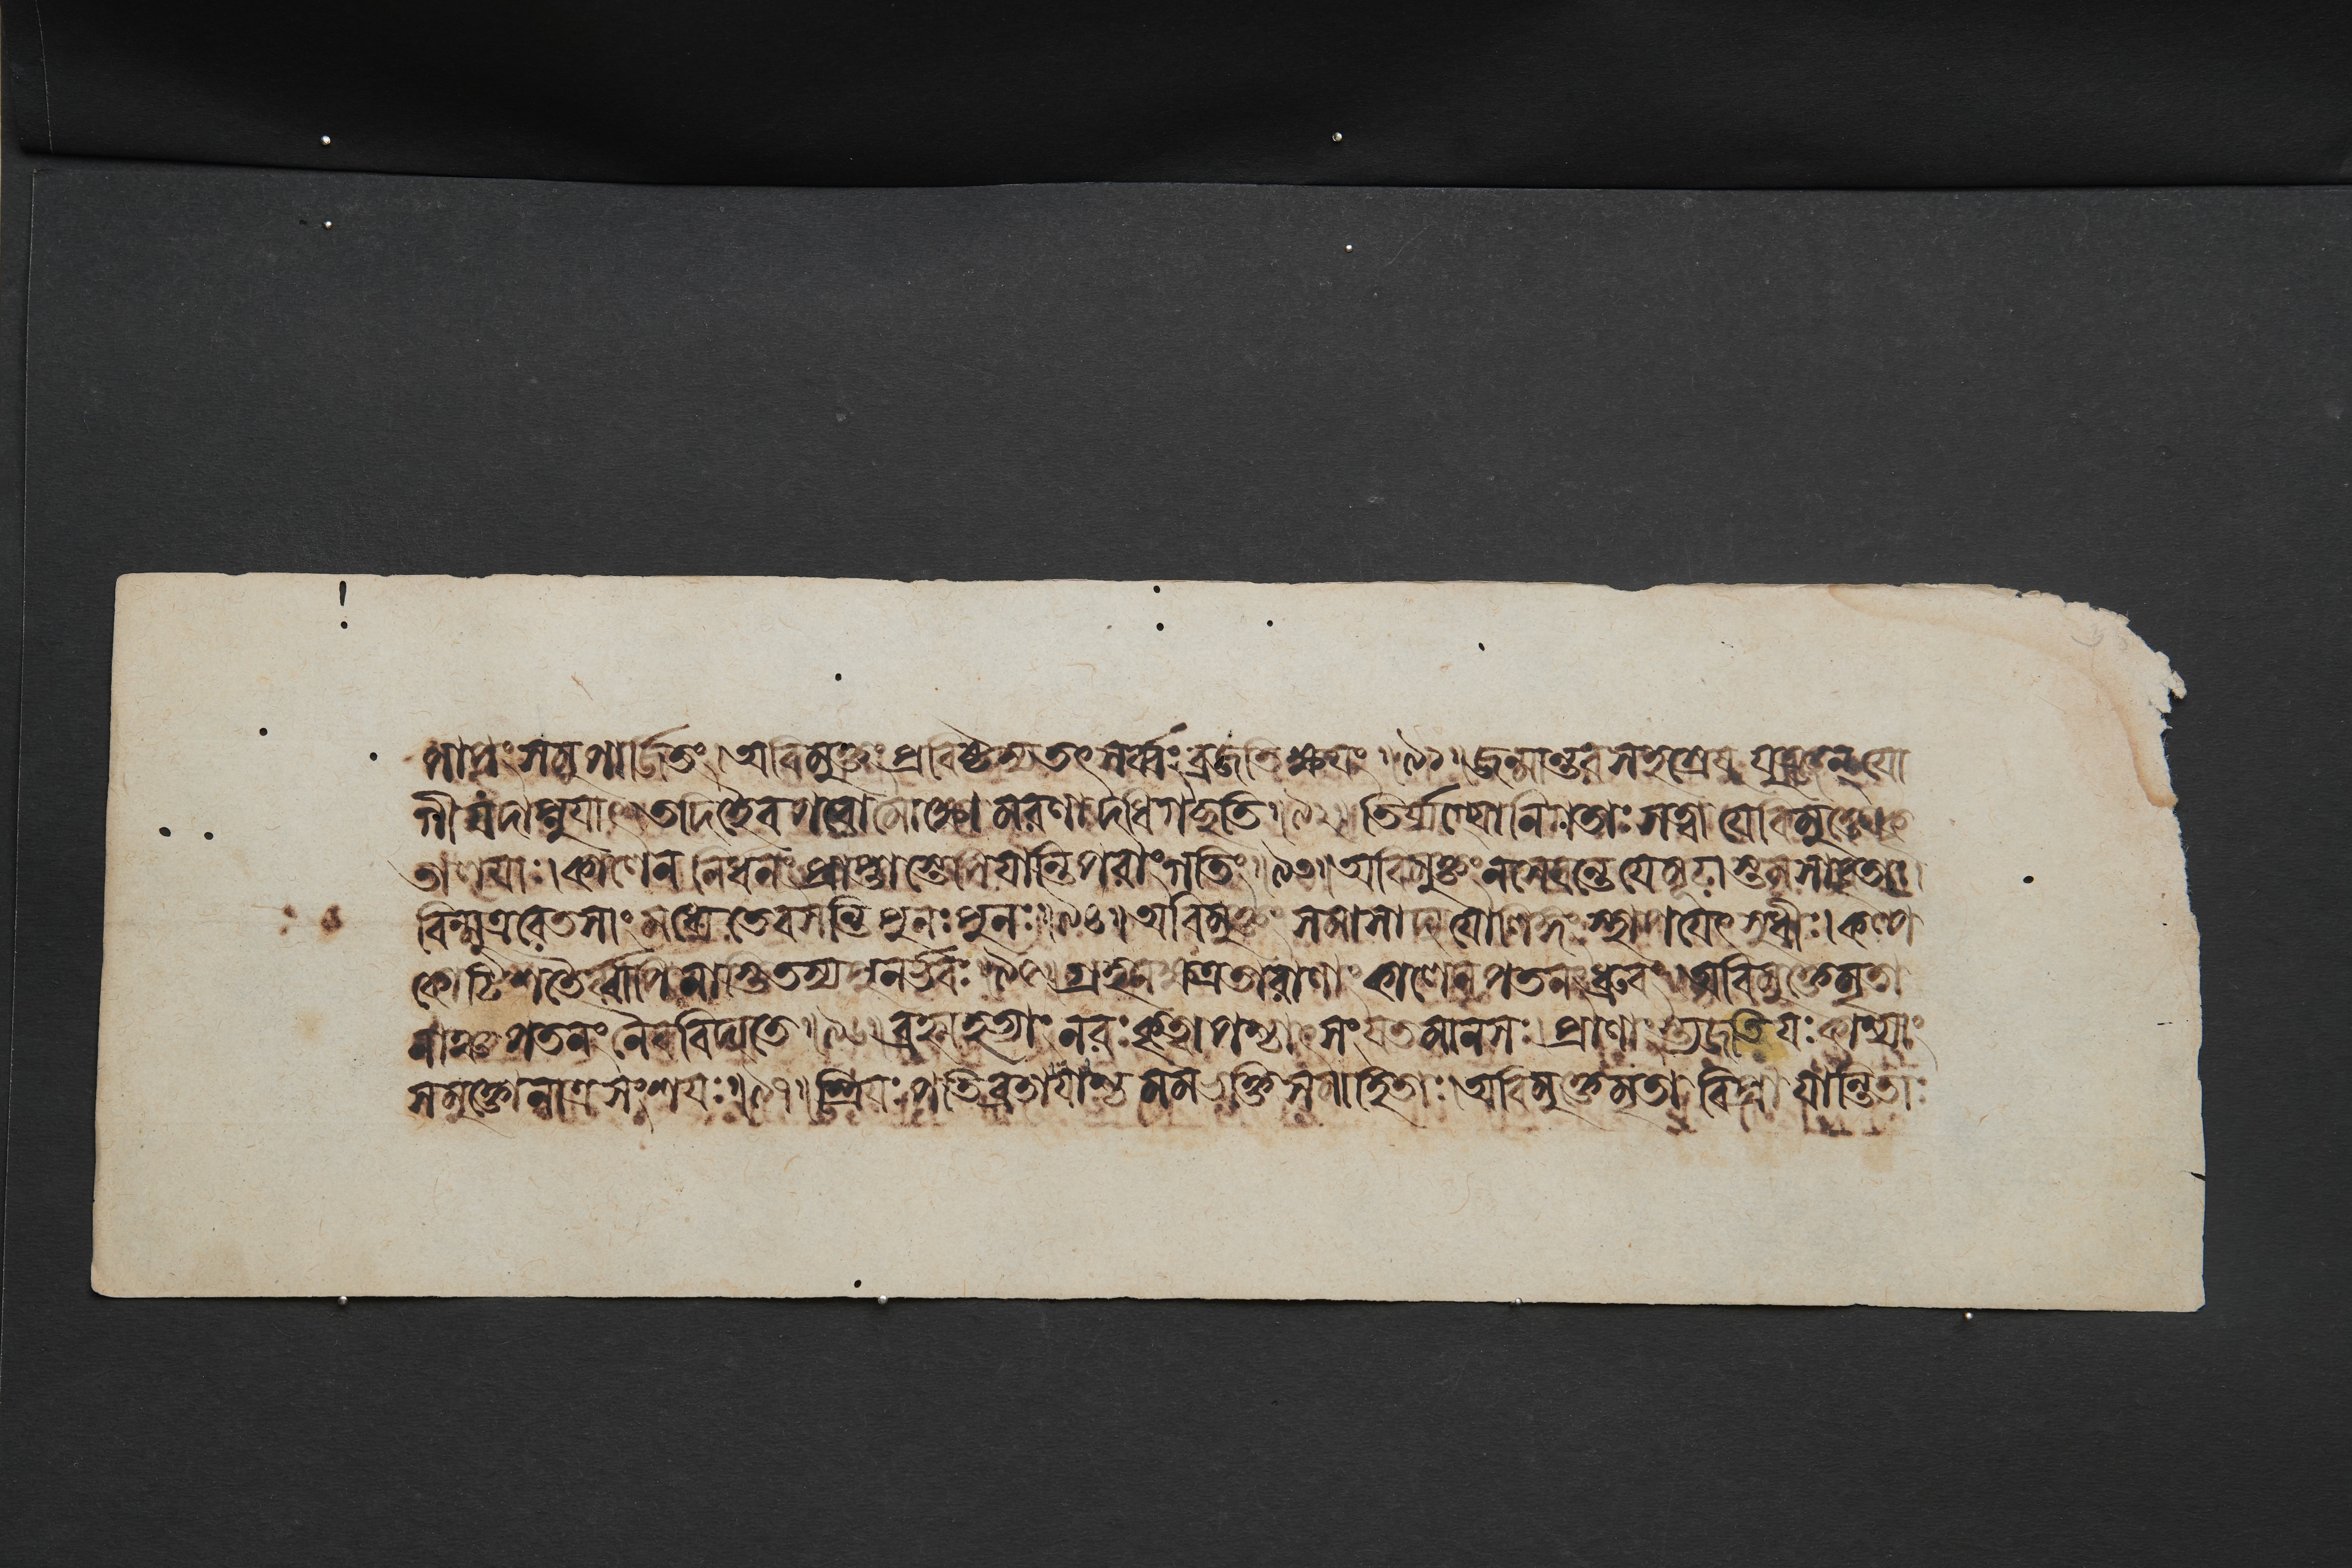 পাপং সমুপার্জিতং। অবিমুক্তং প্রবিষ্টস্য তৎ সর্ব্বং ব্রজতি ক্ষয়ং॥৯১॥ জন্মান্তরসহস্রেষু যুঞ্জন্ যো
গী যদাপ্নুয়াৎ। তদিহৈব পরো মোক্ষো মরণাদধিগচ্ছতি॥৯২॥ তির্য্যগ্যোনিগতাঃ সত্ত্বা যেবিমুক্তে কৃ
তালয়াঃ। কালেন নিধনং প্রাপ্তাস্তেপি যান্তি পরাং গতিং॥৯৩॥ অবিমুক্তং ন সেবন্তে যে মূঢাস্তমসাবৃতাঃ।
বিন্মূত্ররেতসাং মধ্যে তে বসন্তি পুনঃ পুনঃ॥৯৪॥ অবিমুক্তং সমাসাদ্য যো লিঙ্গং স্থাপয়েৎ সুধীঃ। কল্প
কোটিশতৈর্ব্বাপি নাস্তি তস্য পুনর্ভবঃ॥৯৫॥ গ্রহনক্ষত্রতারাণাং কালেন পতনং ধ্রুবং। অবিমুক্তে মৃতা
নাঞ্চ পতনং নৈব বিদ্যতে॥৯৬॥ ব্রহ্মহত্যাং নরঃ কৃত্বা পশ্চাৎ সংযতমানসঃ। প্রাণাংস্ত্যজতি যঃ কাশ্যাং
স মুক্তো নাত্র সংশয়ঃ॥৯৭॥ স্ত্রিয়ঃ পতিব্রতা যাশ্চ মম ভক্তিসমাহিতাঃ। অবিমুক্তে মৃতা বিপ্রা যান্তি তাঃ